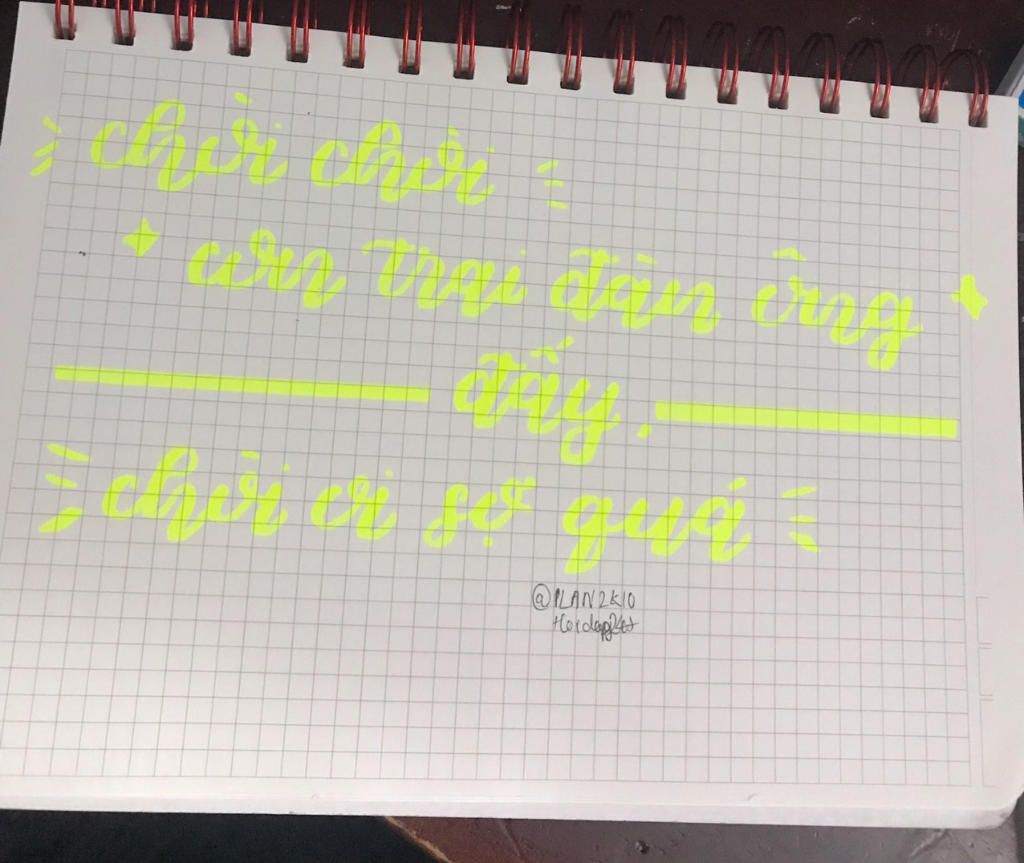 chời chời
con trai đàn ông
đấy.
chời ơi sợ quá
@PLAN2K10